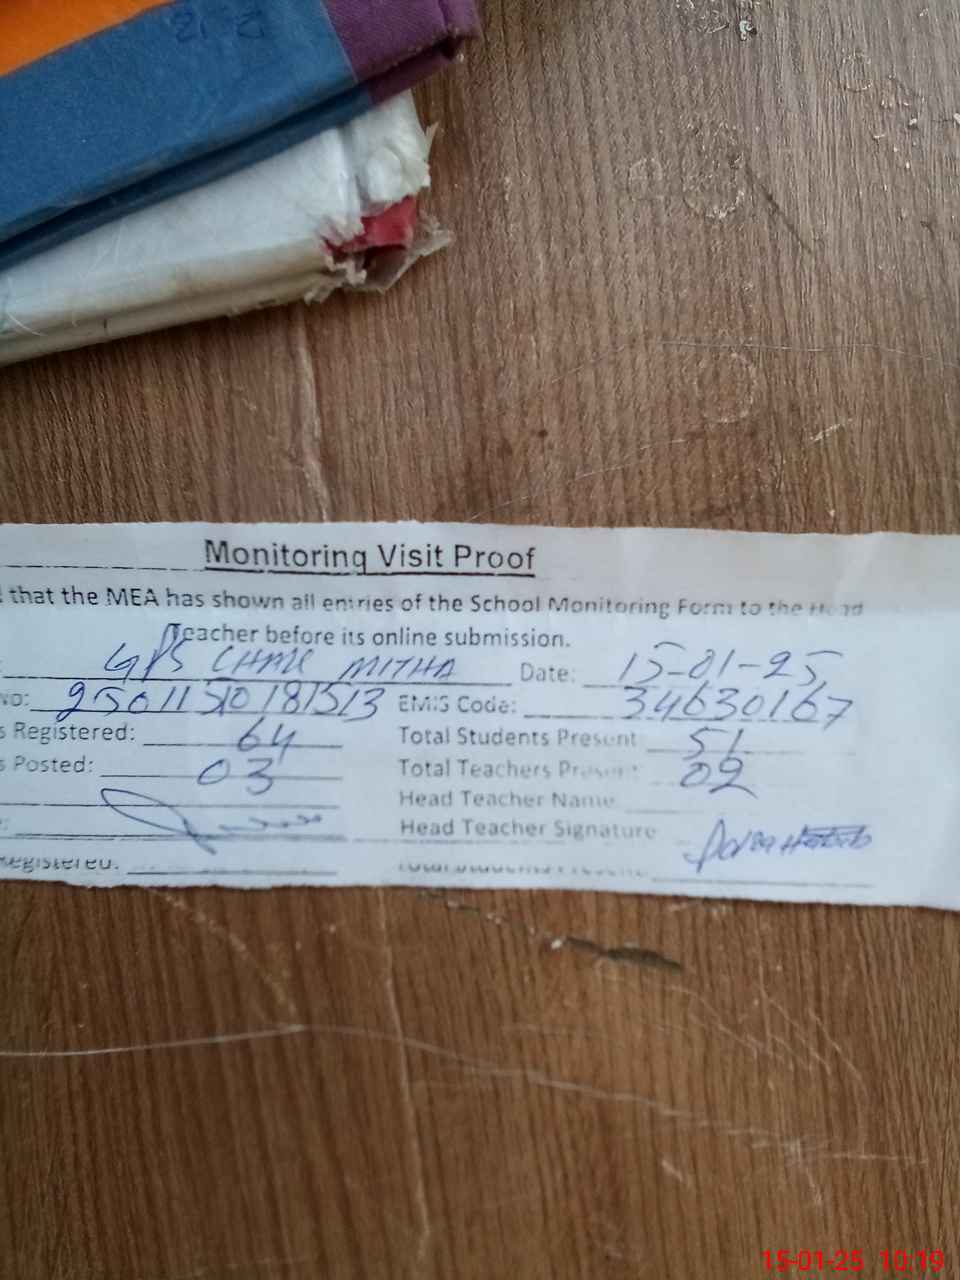 Monitoring Visit Proof
that the MEA has shown all entries of the School Monitoring Form to the Head
Teacher before its online submission.
GPS CHAK MITHA Date: 15-01-25
No: 25011510181513 EMIS Code: 34630167
s Registered: 64 Total Students Present 51
s Posted: 03 Total Teachers Present: 02
Head Teacher Name
Head Teacher Signature
Registered: Total Students Present:
15-01-25 10:19